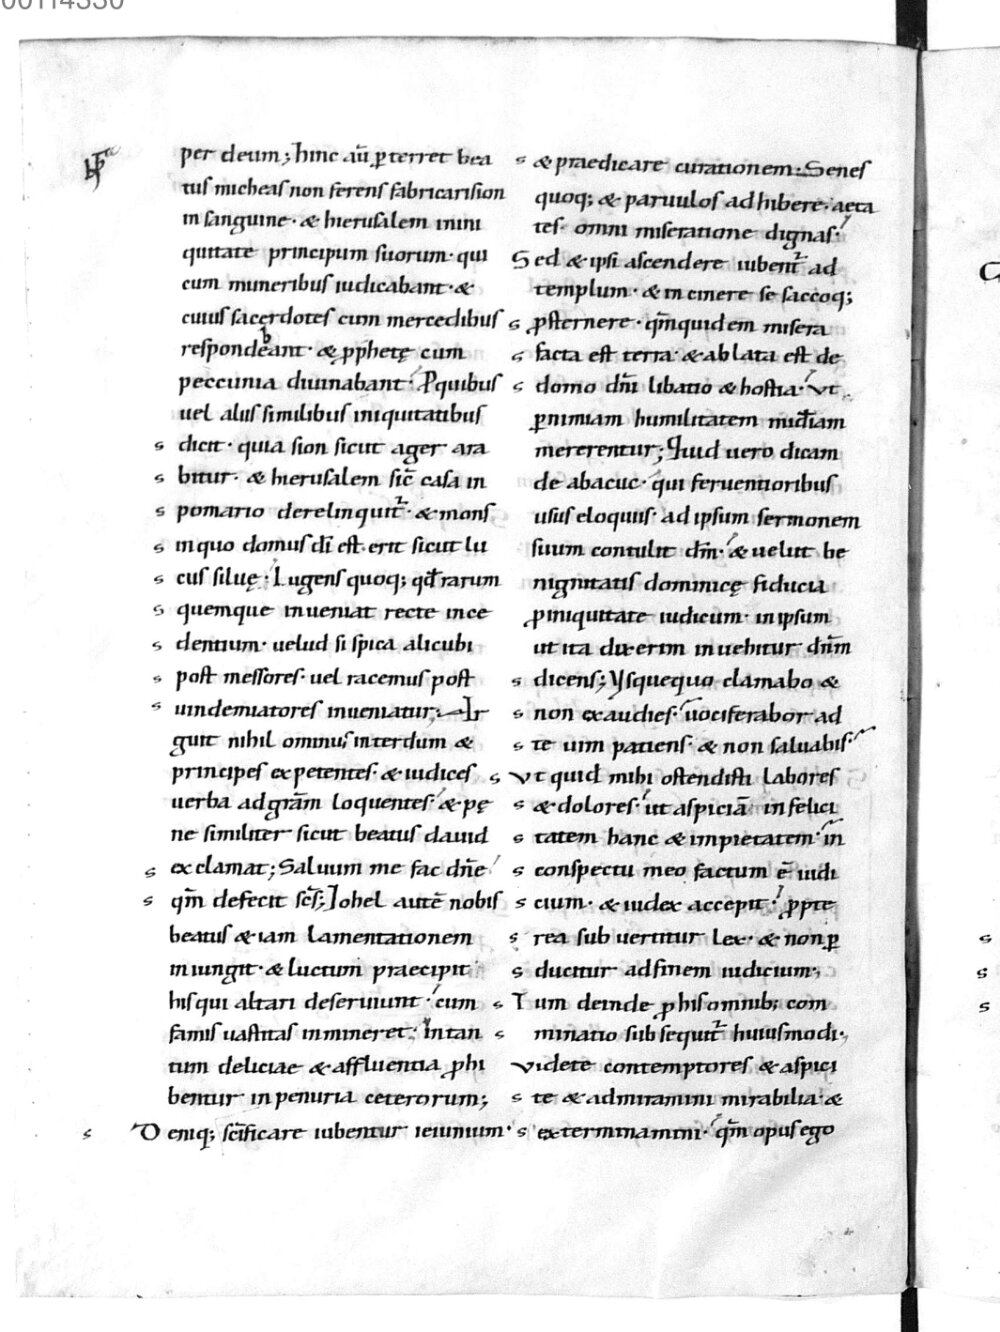 per deum; hinc aũ ꝑterret bea
tus micheas non ferens fabricari sion
in sanguine · & hierusalem in ini
quitate principum suorum · qui
cum muneribus iudicabant · &
cuius sacerdotes cum mercedibus
respondebant · & ꝓphetę cum
peccunia diuinabant · P quibus
uel aliis similibus iniquitatibus
dicit · quia sion sicut ager ara
bitur · & hierusalem sic̄ casa in
pomario derelinquit̃ · & mons
in quo domus dī est · erit sicut lu
cus siluę · Lugens quoq; qđ rarum
quemque inueniat recte ince
dentium · uelud si spica alicubi
post messores · uel racemus post
uindemiatores inueniatur; Ar
guit nihil ominus interdum &
principes expetentes · & iudices
uerba ad grãm loquentes · & pę
ne similiter sicut beatus dauid
exclamat; Saluum me fac dñe
qm̄ defecit sc̄s; Iohel autē nobis
beatus & iam lamentationem
iniungit · & luctum praecipit
his qui altari deseruiunt · cum
famis uastitas inmineret · In tan
tum deliciae & affluentia ꝓhi
bentur in penuria ceterorum;
Deniq; scīficare iubentur ieiunium ·
& praedicare curationem · Senes
quoq; & paruulos adhibere · aeta
tes · omni miseratione dignas ·
Sed & ipsi ascendere iubent̃ ad
templum · & in cinere se saccoq;
ꝓsternere · qm̄ quidem misera
facta est terra · & ablata est de
domo dñi libatio & hostia · Vt
ꝑ nimiam humilitatem mĩđiam
mererentur; Quid uero dicam
de abacuc · qui feruentioribus
usus eloquiis · ad ipsum sermonem
suum contulit dñm · & uelut be
nignitatis dominicę fiducia
ꝓ iniquitate iudicum · in ipsum
ut ita dixerim inuehitur dñm
dicens; Vsquequo clamabo &
non exaudies · uociferabor ad
te uim patiens · & non saluabis ·
Vt quid mihi ostendisti labores
& dolores · ut aspiciā infelici
tatem hanc & impietatem · in
conspectu meo factum ē iudi
cium · & iudex accepit · ꝓpte
rea subuertitur lex · & non ꝑ
ducitur ad finem iudicium ·;
Tum deinde ꝓ his omnib; com
minatio subsequit̃ huiusmodi ·;
Videte contemptores & aspici
te & admiramini mirabilia · &
exterminamini · qm̄ opus ego